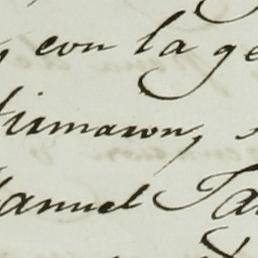 con la ge
firmaron,
Manuel Ta